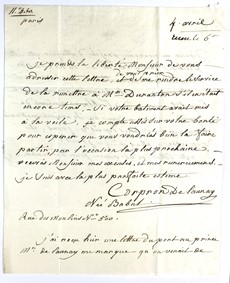 paris
4 avril
recue le 6
je prends la liberté Monsieur de vous
adresser cette lettre, et de me rendre le service
de la remettre a Mr. Duraston s'il avitait
encore tems. Si votre batiment avait mis
a la voile, je compte assés sur votre bonté
pour esperer que vous voudrés bien la faire
partir par l'occasion la plus prochaine.
recevés Monsieur mes excuses, et mes remerciemens.
je suis avec la plus parfaite estime
Corprondelaunay
Née
Rue des Moulins
j'ai recu hier une lettre du port au prince
Mr. de launay me marque qu'on venait de